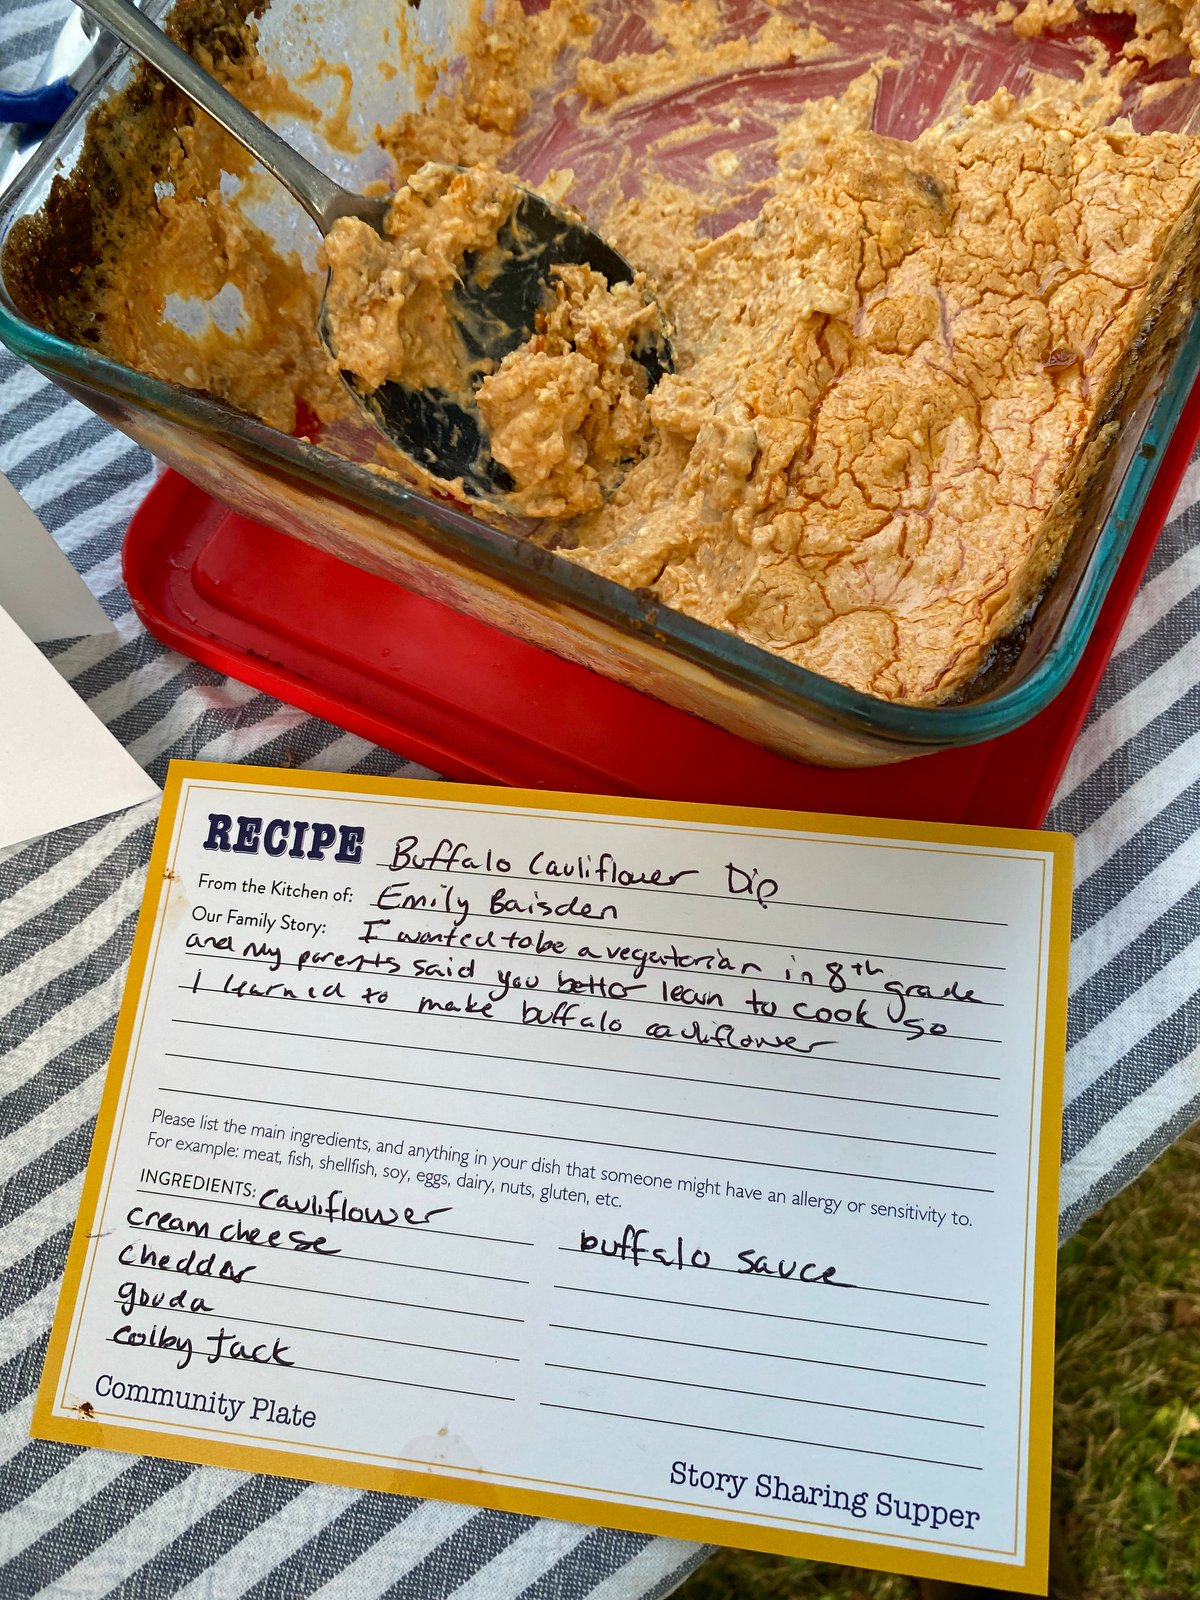 RECIPE Buffalo Cauliflower Dip
From the Kitchen of: Emily Baisden
Our Family Story: I wanted to be a vegetarian in 8th grade
and my parents said you better learn to cook so
I learned to make buffalo cauliflower
Please list the main ingredients, and anything in your dish that someone might have an allergy or sensitivity to.
For example: meat, fish, shellfish, soy, eggs, dairy, nuts, gluten, etc.
INGREDIENTS: cauliflower
cream cheese
cheddar
gouda
colby Jack
buffalo sauce
Community Plate
Story Sharing Supper